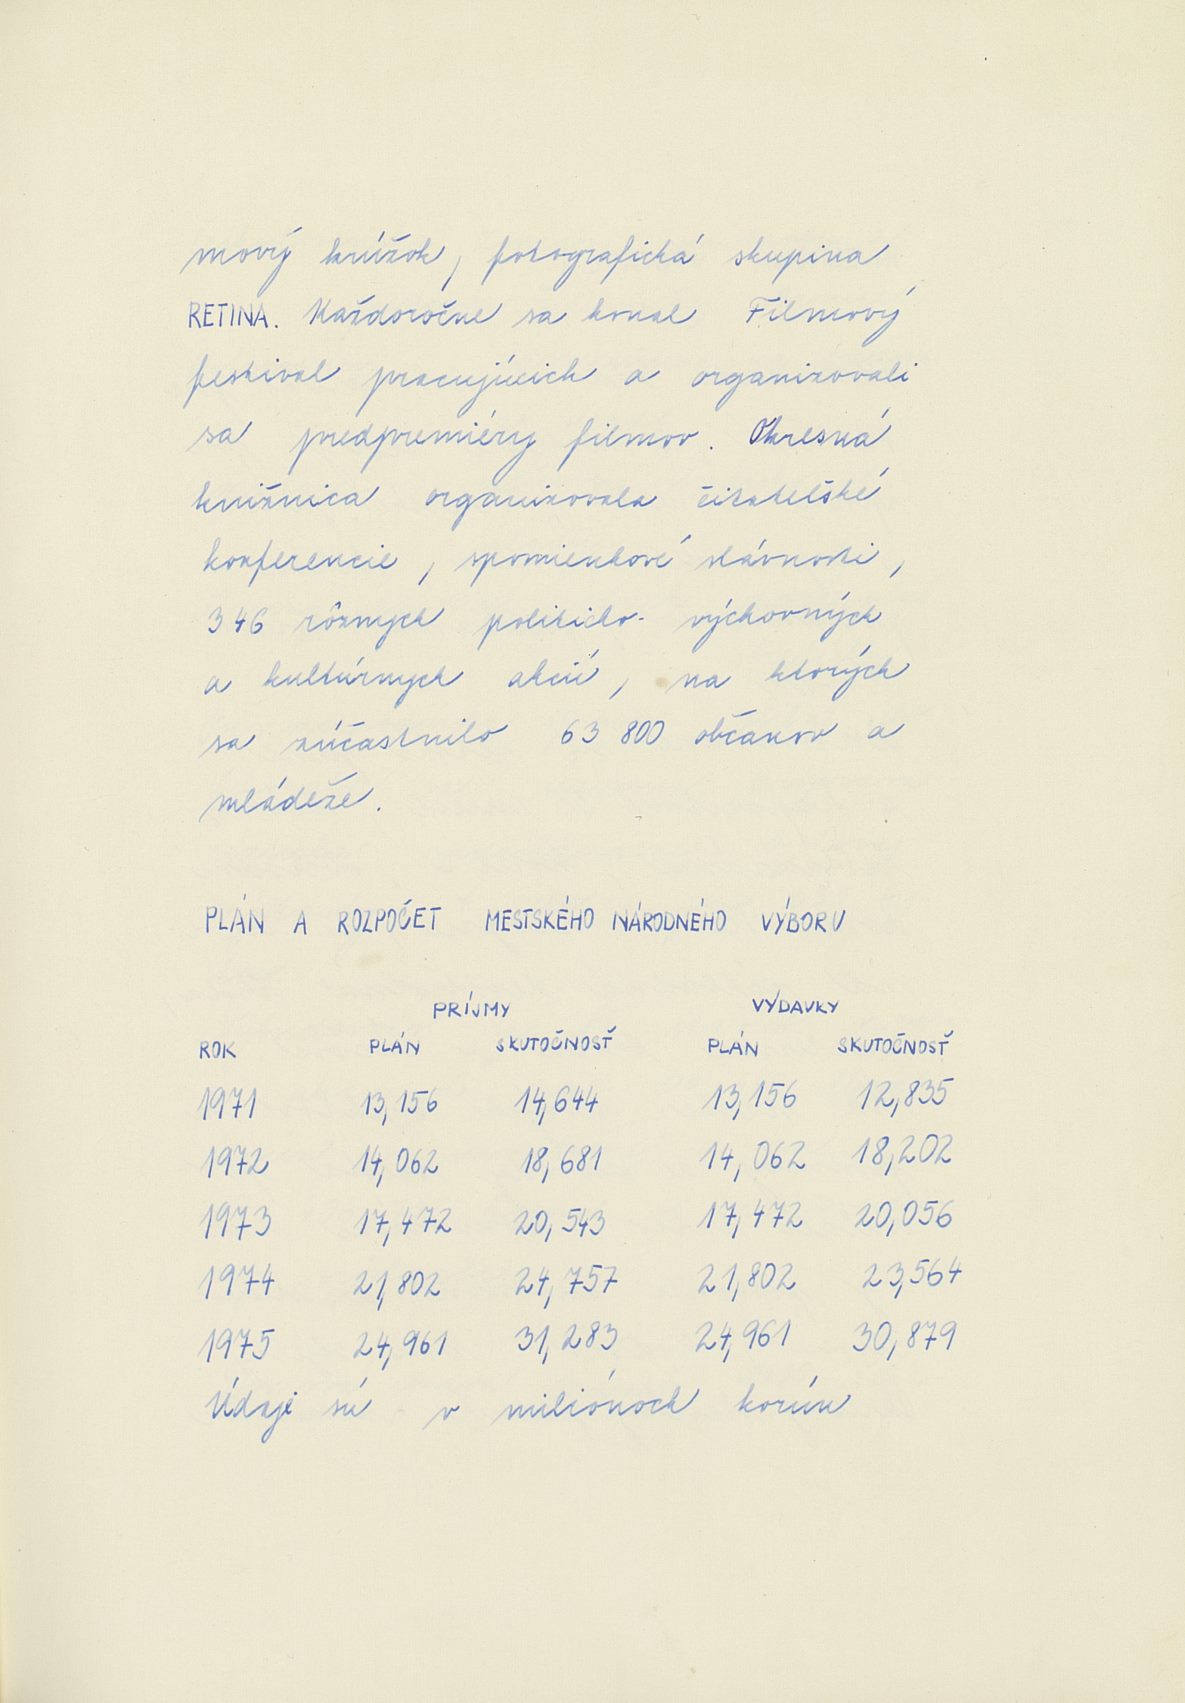 mový krúžok, fotografická skupina
RETINA. Každoročne sa konal Filmový
festival pracujúcich a organizovali
sa predpremiéry filmov. Okresná
knižnica organizovala čitateľské
konferencie, spomienkové slávnosti,
346 rôznych politicko-výchovných
a kultúrnych akcií, na ktorých
sa zúčastnilo 63 800 občanov a
mládeže.
PLÁN A ROZPOČET MESTSKÉHO NÁRODNÉHO VÝBORU
PRÍJMY VÝDAVKY
ROK PLÁN SKUTOČNOSŤ PLÁN SKUTOČNOSŤ
1971 13,156 14,644 13,156 12,835
1972 14,062 18,681 14,062 18,202
1973 17,472 20,543 17,472 20,056
1974 21,802 24,757 21,802 23,564
1975 24,961 31,283 24,961 30,879
Údaje sú v miliónoch korún